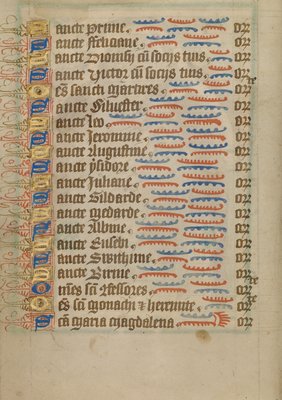 Sancte Prime or
Sancte ffeliciane or
Sancte Dionisi cũ socijs tuis or
Sancte Victor cũ socijs tuis or
Oẽs sancti Martires orte
Sancte Siluester or
Sancte Leo or
Sancte Jeronime or
Sancte Augustine or
Sancte ysidore or
Sancte Juliane or
Sancte Gildarde or
Sancte Medarde or
Sancte Albine or
Sancte Eusebi or
Sancte Swithine or
Sancte Birine or
Omẽs sc̃i Cõfessores or
Oẽs sc̃i Monachi ⁊ heremite or
Sc̃a Maria Magdalena or